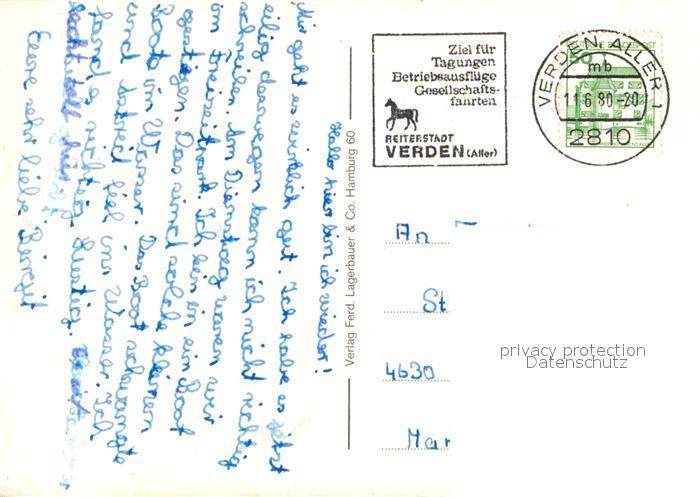 Hallo hier bin ich wieder!
Mir geht es wirklich gut. Ich habe es jetzt
eilig deswegen kann ich nicht richtig
schreiben. Am Dienstag waren wir
im Freizeitpark. Ich bin in ein Boot
gestiegen. Das sind solche kleinen
Boote im Wasser. Das Boot schwankte
und dabei fiel ins Wasser. Ich
fand es richtig lustig.
Eure sehr liebe Birgit
Verlag Ferd. Lagerbauer & Co. Hamburg 60
Ziel für
Tagungen
Betriebsausflüge
Gesellschafts-
fahrten
REITERSTADT
VERDEN (Aller)
VERDEN, ALLER 1
mb
11.6.80-20
2810
50
An
St
4630
Mar
privacy protection
Datenschutz